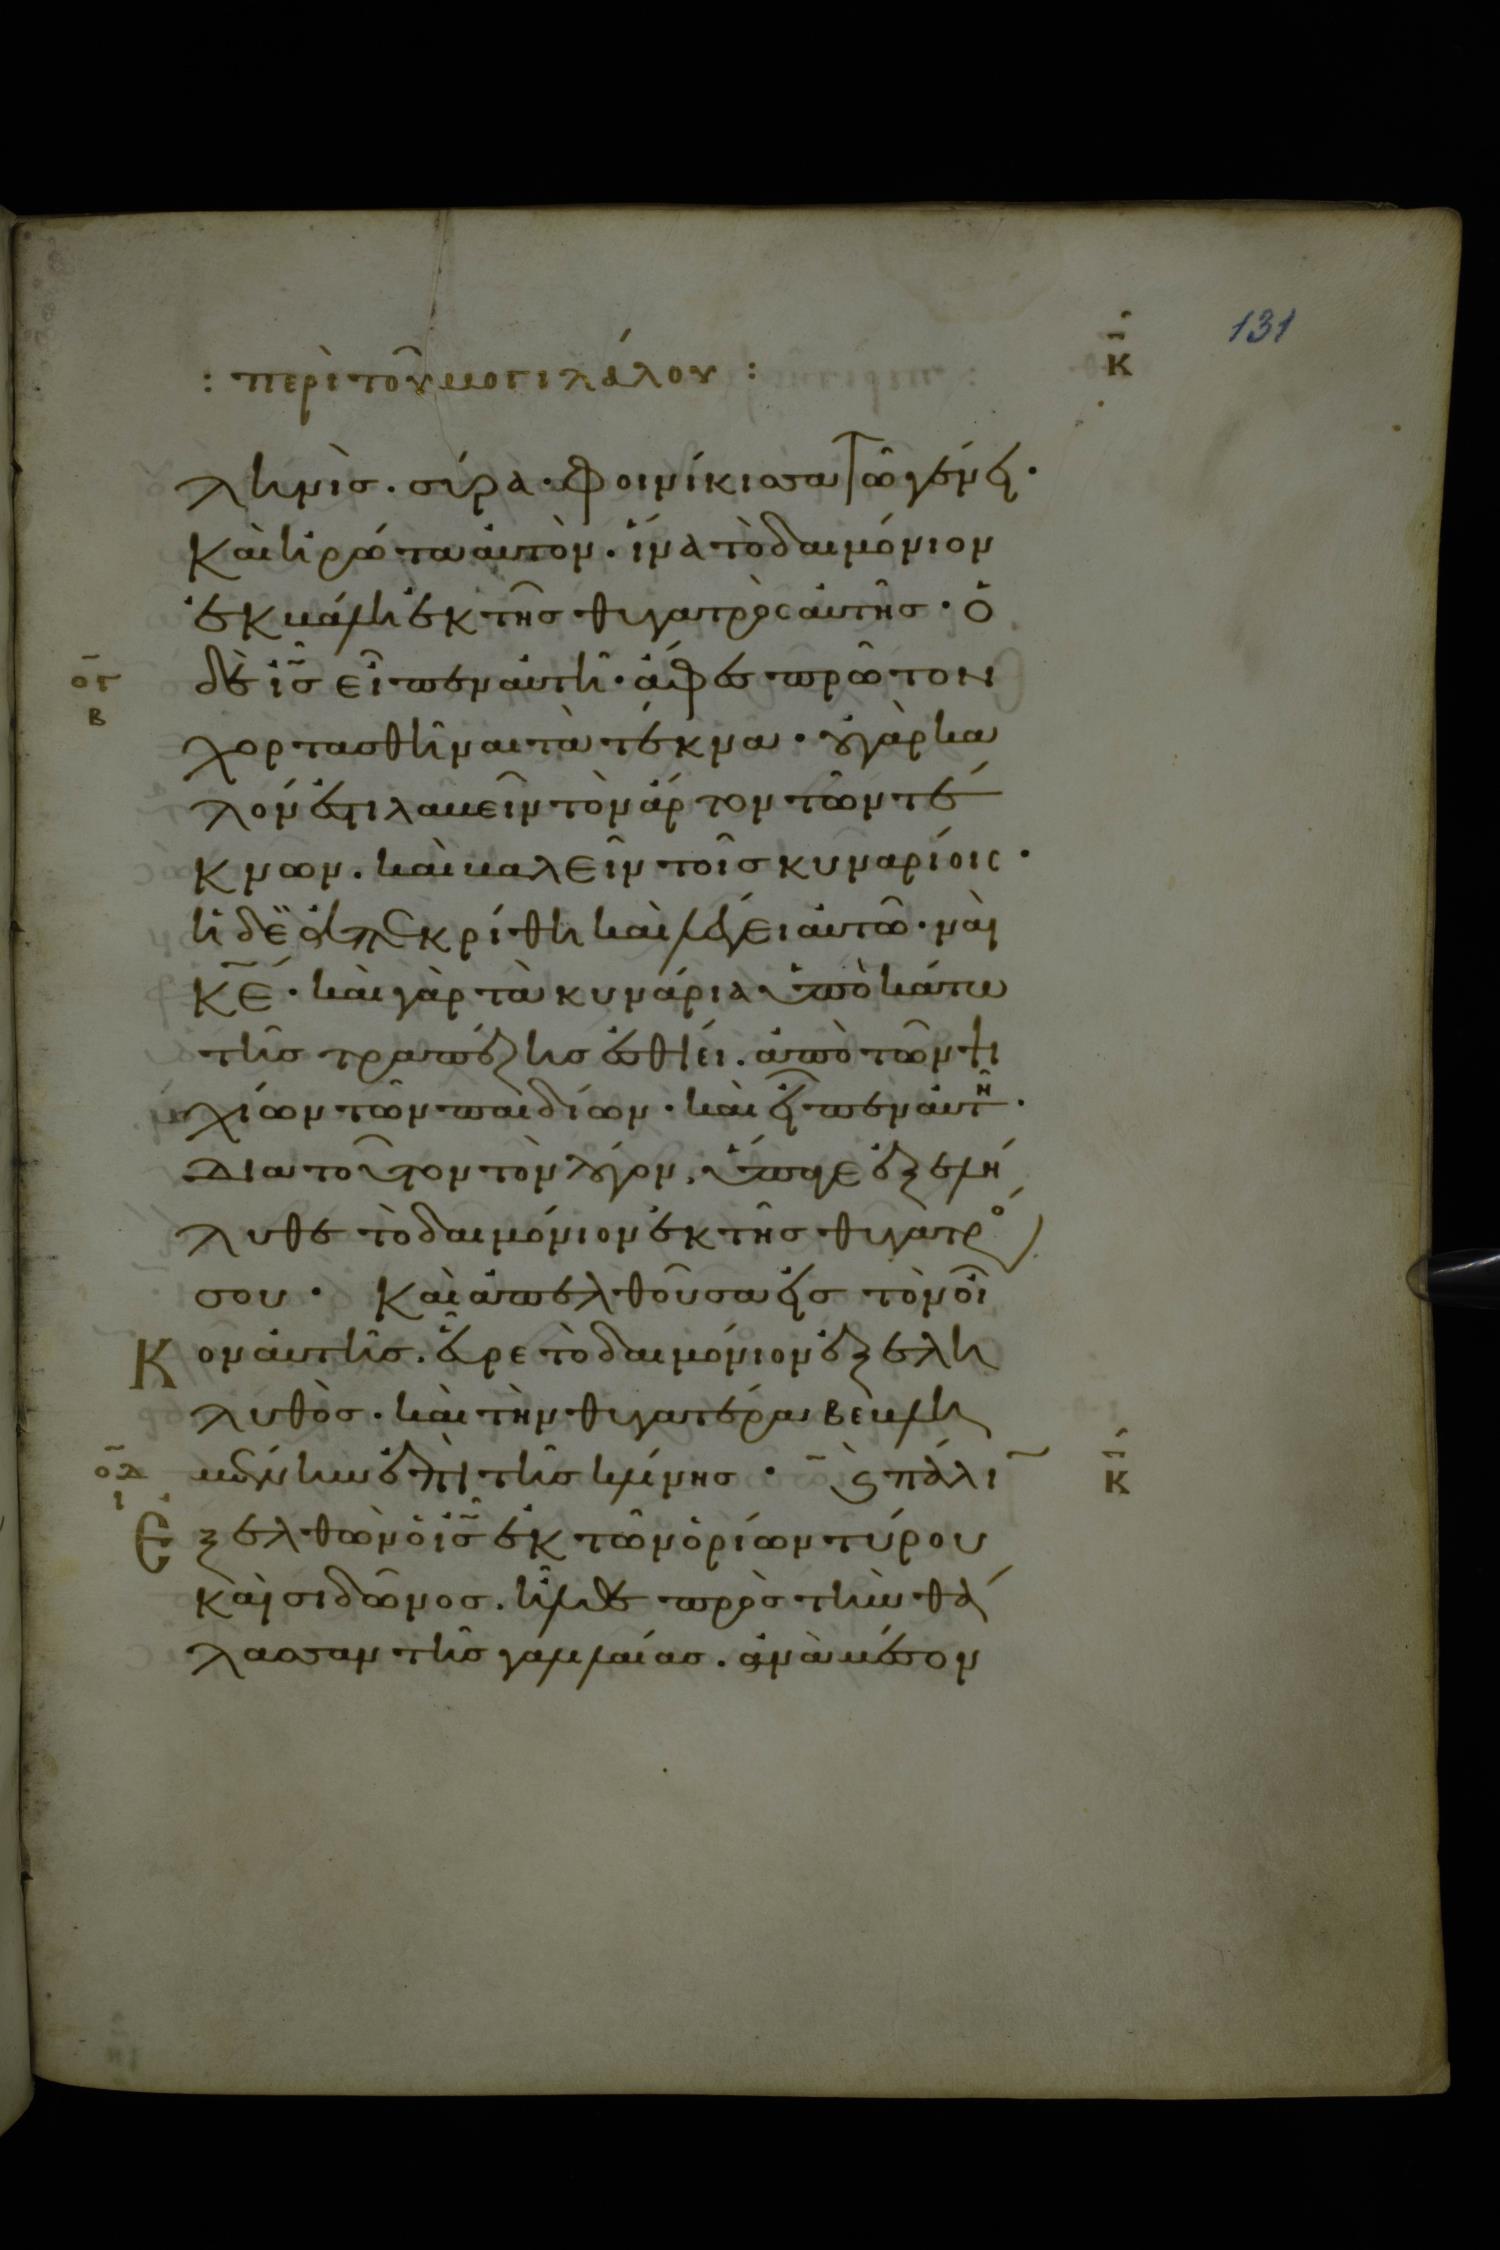 131
κ
: περὶ τοῦ μογιλάλου :
ληνὶσ. σύρα· φοινίκισσα τῶ γένει·
Καὶ ἠρώτα αὐτὸν· ἵνα τὸ δαιμόνιον
ἐκβάλη ἐκ τῆσ θυγατρὸς αὐτῆσ· ὁ
ογ
β
δὲ ἰσ̅ εἶπεν αὐτῆ· ἄφες πρῶτον
χορτασθῆναι τὰ τέκνα· οὐ γὰρ κα
λόν ἐστι λαβεῖν τὸν ἄρτον τῶν τέ
κνων. καὶ βαλεῖν τοῖσ κυναρίοις·
ἡ δὲ ἀπεκρίθη καὶ λέγει αὐτῶ· ναὶ
κε̅· καὶ γὰρ τὰ κυνάρια ὑποκάτω
τῆσ τραπέζησ ἐσθίει. ἀπὸ τῶν ψι
χίων τῶν παιδίων· καὶ εἶπεν αὐτῆ·
Διὰ τοῦτον τὸν λόγον, ὕπαγε ἐξελή
λυθε τὸ δαιμόνιον ἐκ τῆσ θυγατρό
σου· Καὶ ἀπελθοῦσα εἰσ τὸν οἶ
Κον αὐτῆσ. εὗρε τὸ δαιμόνιον ἐξελη
λυθὸσ. καὶ τὴν θυγατέρα βεβλη
οδ
ι
μένην ἐπὶ τῆσ κλίνησ· πάλι
κ
Εξελθὼν ὁ ἰσ̅ ἐκ τῶν ὁρίων τύρου
καὶ σιδῶνοσ. ἦλθε πρὸσ τὴν θά
λασσαν τῆσ γαλιλαίασ. ἀνὰ μέσον